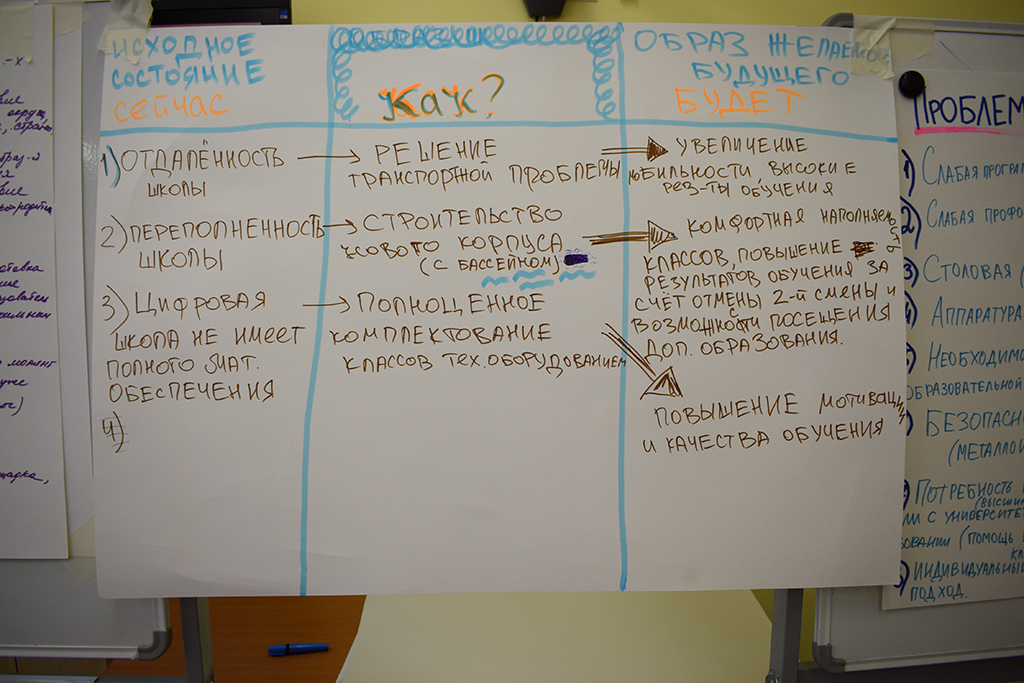 ИСХОДНОЕ
СОСТОЯНИЕ
СЕЙЧАС
КАК?
ОБРАЗ ЖЕЛАЕМОГО
БУДУЩЕГО
БУДЕТ
1) ОТДАЛЁННОСТЬ
ШКОЛЫ
РЕШЕНИЕ
ТРАНСПОРТНОЙ ПРОБЛЕМЫ
УВЕЛИЧЕНИЕ
МОБИЛЬНОСТИ ВЫСОКИЕ
РЕЗ-ТЫ ОБУЧЕНИЯ
2) ПЕРЕПОЛНЕННОСТЬ
ШКОЛЫ
СТРОИТЕЛЬСТВО
НОВОГО КОРПУСА
(С БАССЕЙНОМ)
КОМФОРТНАЯ НАПОЛНЯЕМОСТЬ
КЛАССОВ, ПОВЫШЕНИЕ
РЕЗУЛЬТАТОВ ОБУЧЕНИЯ ЗА
СЧЁТ ОТМЕНЫ 2-Й СМЕНЫ И
С
ВОЗМОЖНОСТИ ПОСЕЩЕНИЯ
ДОП. ОБРАЗОВАНИЯ.
3) ЦИФРОВАЯ
ШКОЛА НЕ ИМЕЕТ
ПОЛНОГО МАТ.
ОБЕСПЕЧЕНИЯ
ПОЛНОЦЕННОЕ
КОМПЛЕКТОВАНИЕ
КЛАССОВ ТЕХ. ОБОРУДОВАНИЕМ
ПОВЫШЕНИЕ МОТИВАЦИИ
И КАЧЕСТВА ОБУЧЕНИЯ
4)
ПРОБЛЕМ
1) СЛАБАЯ ПРОГРАМ
2) СЛАБАЯ ПРОФО
3) СТОЛОВАЯ (
4) АППАРАТУРА
5) НЕОБХОДИМО
ОБРАЗОВАТЕЛЬНОЙ
БЕЗОПАСНО
(МЕТАЛЛОИ
ПОТРЕБНОСТЬ
(ВЫСШИ
ИИ С УНИВЕРСИТЕ
ЗОВАНИИ (ПОМОЩЬ
КЛ
ИНДИВИДУАЛЬНЫЙ
ПОДХОД.